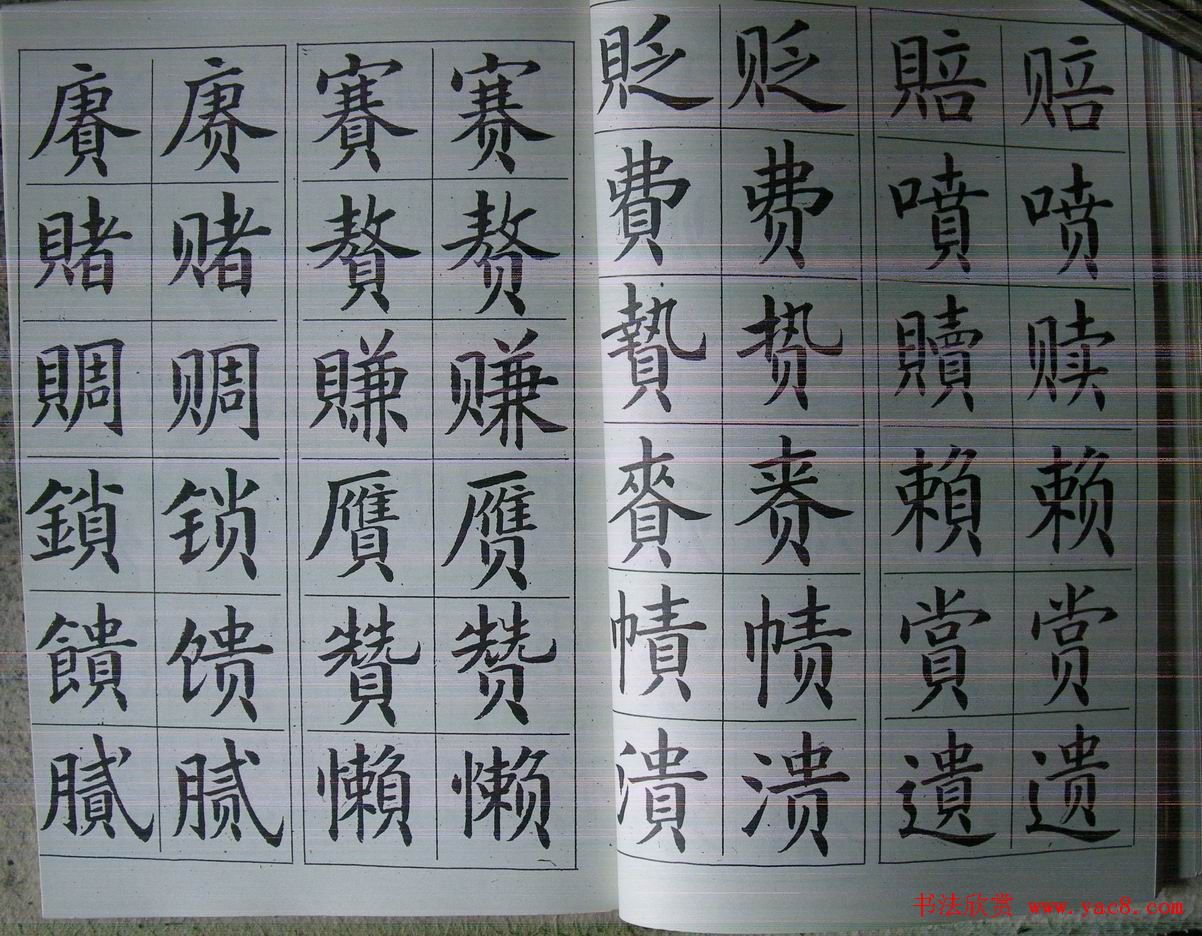 賡 赓 賽 赛
賭 赌 贅 赘
賙 赒 賺 赚
鎖 锁 贋 赝
饋 馈 贊 赞
膩 腻 懶 懒
貶 贬 賠 赔
費 费 噴 喷
贄 贽 贖 赎
賚 赉 賴 赖
幘 帻 賞 赏
潰 溃 遺 遗
书法欣赏 www.yac8.com